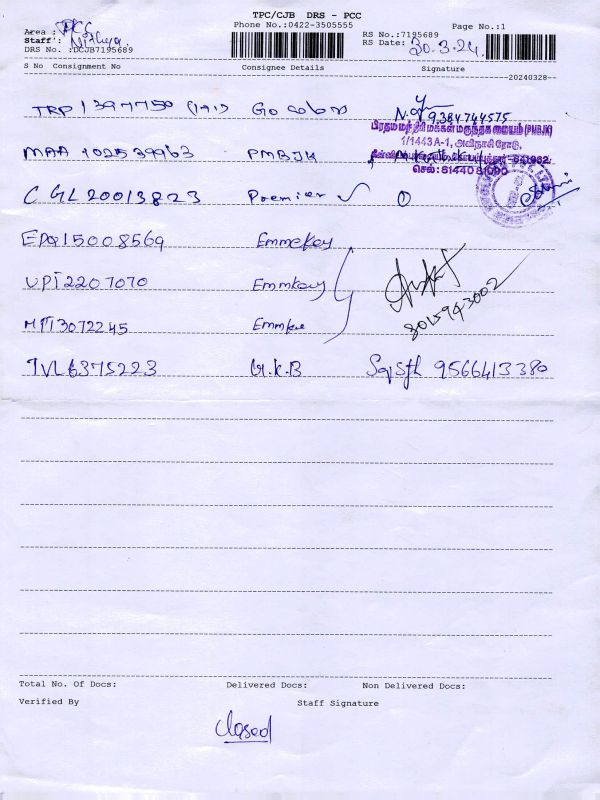 TPC/CJB DRS - PCC
Phone No.:0422-3505555
Page No.:1
Area : PCC
Staff: Nithya.
DRS No. :DCJB7195689
RS No.:7195689
RS Date: 30.3.24.
S No Consignment No Consignee Details Signature
20240328
TRP1397750 (191)
9384744575
பிரதம மந்திரி மக்கள் மருந்தக மையம் (PMBJK)
1/1443 A-1, அவிநாசி ரோடு,
செல்: 81440 81090
MAA 102539963 PMBJK
CGL20013823 Premier
EPQ15008569 Emmekey
UPI2207070 Emmkey
MTI3072245 Emmkee
8015943002
TVL6375223 G.K.B 9566413380
Total No. Of Docs: Delivered Docs: Non Delivered Docs:
Verified By Staff Signature
closed